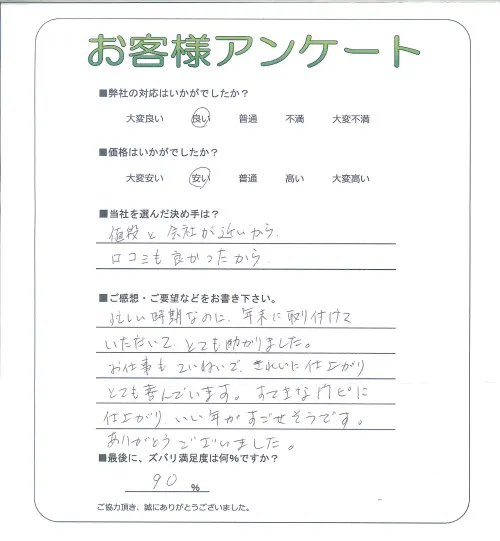 お客様アンケート
■弊社の対応はいかがでしたか？
大変良い 良い 普通 不満 大変不満
■価格はいかがでしたか？
大変安い 安い 普通 高い 大変高い
■当社を選んだ決め手は？
値段と会社が近いから
口コミも良かったから
■ご感想・ご要望などをお書き下さい。
忙しい時期なのに、年末に取り付けて
いただいて、とても助かりました。
お仕事もていねいで、きれいに仕上がり
とても喜んでいます。すてきなリビに
仕上がり、いい年がすごせそうです。
ありがとうございました。
■最後に、ズバリ満足度は何%ですか？
90 %
ご協力頂き、誠にありがとうございました。